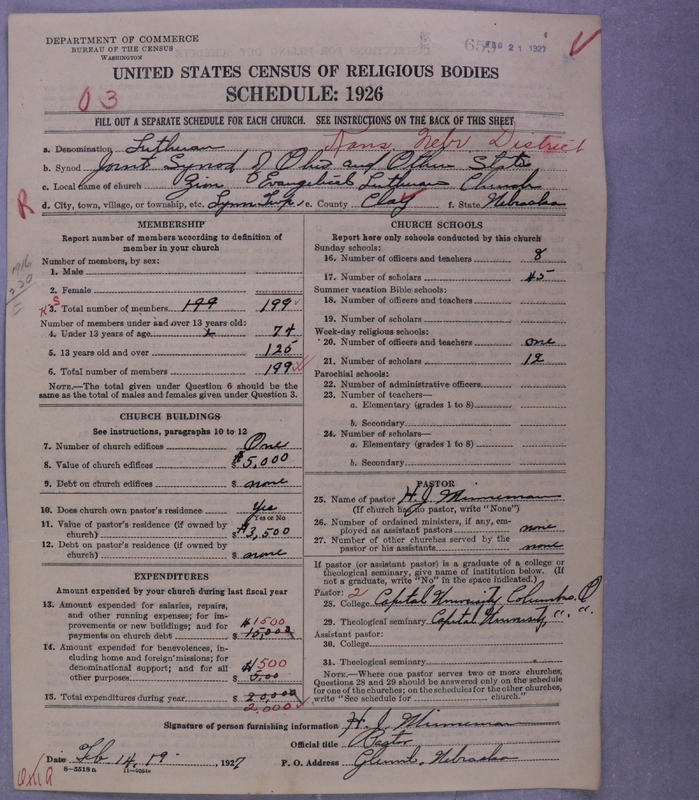 DEPARTMENT OF COMMERCE
BUREAU OF THE CENSUS
WASHINGTON
659 FEB 21 1927
UNITED STATES CENSUS OF RELIGIOUS BODIES
SCHEDULE: 1926
03
FILL OUT A SEPARATE SCHEDULE FOR EACH CHURCH. SEE INSTRUCTIONS ON THE BACK OF THIS SHEET
a. Denomination Lutheran Kans. Nebr District
b. Synod Joint Synod of Ohio and Other States
c. Local name of church Zion Evangelical Lutheran Church
R
d. City, town, village, or township, etc. Lynn Twp. e. County Clay f. State Nebraska
MEMBERSHIP
Report number of members according to definition of
member in your church
Number of members, by sex:
1. Male
2. Female
3. Total number of members 199 199
Number of members under and over 13 years old:
4. Under 13 years of age 74
5. 13 years old and over 125
6. Total number of members 199
NOTE.—The total given under Question 6 should be the
same as the total of males and females given under Question 3.
1916
230
CHURCH BUILDINGS
See instructions, paragraphs 10 to 12
7. Number of church edifices One
8. Value of church edifices $ 5,000
9. Debt on church edifices $ none
10. Does church own pastor's residence? Yes
Yes or No
11. Value of pastor's residence (if owned by
church) $3,500
12. Debt on pastor's residence (if owned by
church) $ none
EXPENDITURES
Amount expended by your church during last fiscal year
13. Amount expended for salaries, repairs,
and other running expenses; for im-
provements or new buildings; and for
payments on church debt $ 15,000
$1500
14. Amount expended for benevolences, in-
cluding home and foreign missions; for
denominational support; and for all
other purposes $ 5,00
$500
15. Total expenditures during year $ 20,000
2,000
CHURCH SCHOOLS
Report here only schools conducted by this church
Sunday schools:
16. Number of officers and teachers 8
17. Number of scholars 45
Summer vacation Bible schools:
18. Number of officers and teachers
19. Number of scholars
Week-day religious schools:
20. Number of officers and teachers one
21. Number of scholars 12
Parochial schools:
22. Number of administrative officers
23. Number of teachers—
a. Elementary (grades 1 to 8)
b. Secondary
24. Number of scholars—
a. Elementary (grades 1 to 8)
b. Secondary
PASTOR
25. Name of pastor H. J. Minneman
(If church has no pastor, write "None")
26. Number of ordained ministers, if any, em-
ployed as assistant pastors none
27. Number of other churches served by the
pastor or his assistants none
If pastor (or assistant pastor) is a graduate of a college or
theological seminary, give name of institution below. (If
not a graduate, write "No" in the space indicated.)
Pastor: 2
28. College Capital University Columbus. O
29. Theological seminary Capital University ". ".
Assistant pastor:
30. College
31. Theological seminary
NOTE.—Where one pastor serves two or more churches,
Questions 28 and 29 should be answered only on the schedule
for one of the churches; on the schedules for the other churches,
write "See schedule for church."
Signature of person furnishing information H. J. Minneman
Official title Pastor
Date Feb 14, 19 1927
P. O. Address Glenvil, Nebraska
8—5518a 11—9054a